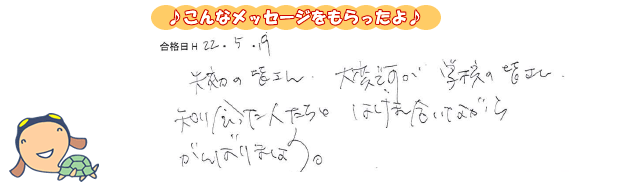 ♪こんなメッセージをもらったよ♪
合格日H 22.5.19
の皆さん、大変ですが学校の皆さん、
知り会った人たちとはげまし合いながら
がんばりましょう。